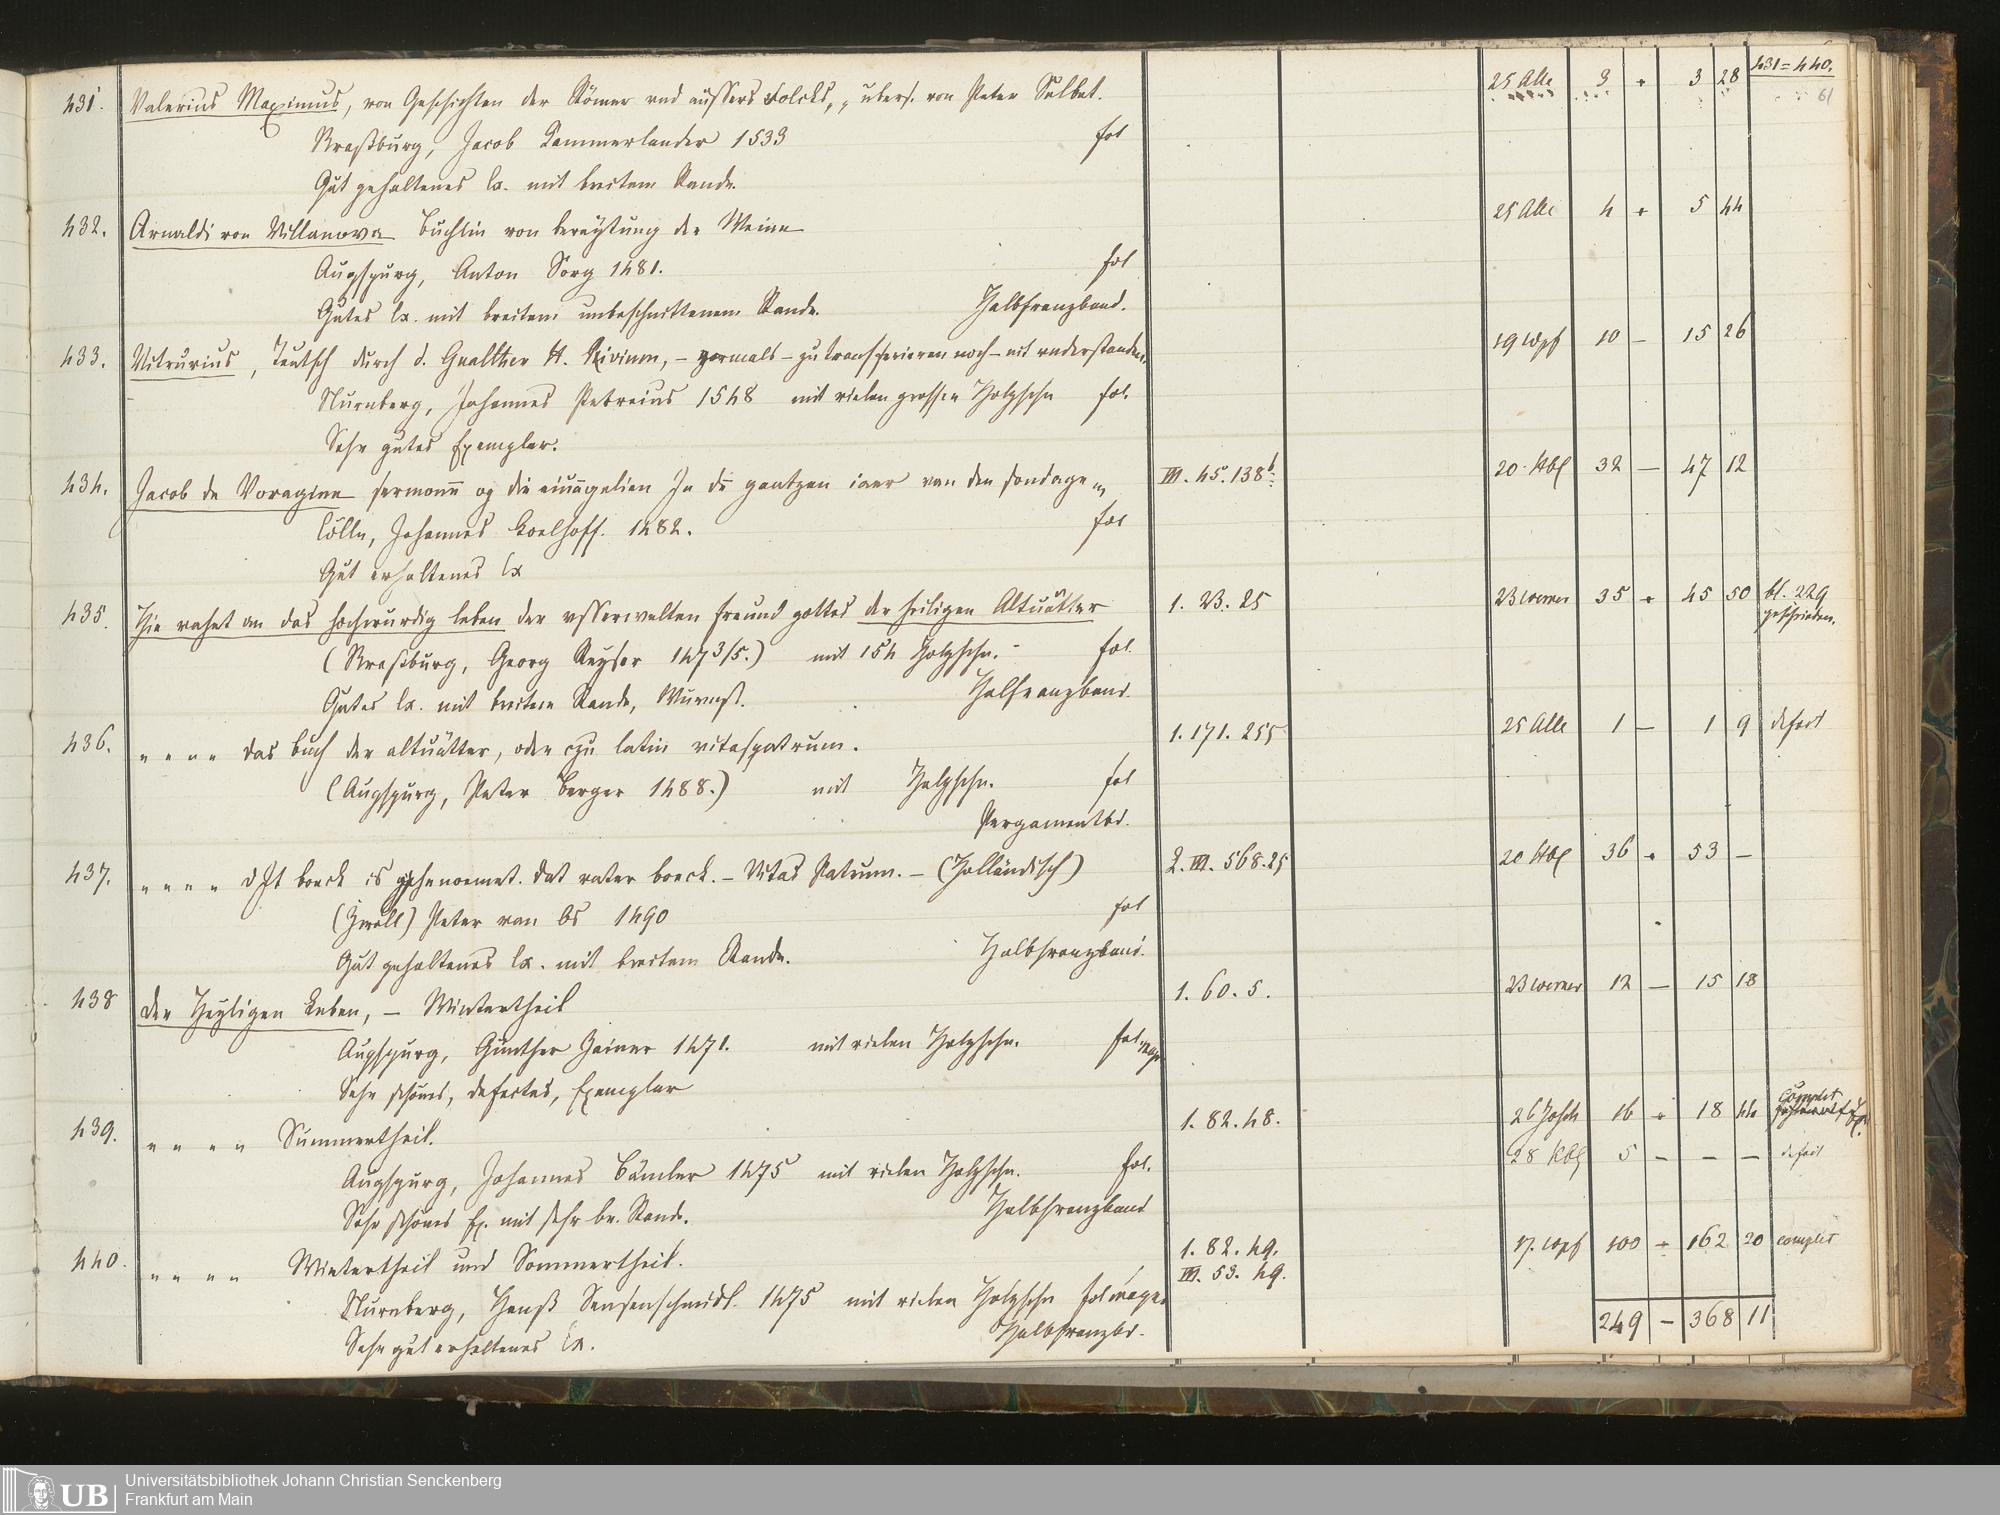 431 = 440.
61
431. Valerius Maximus, von Geschichten der Römer und aussers Folcks, „ übers. von Peter Selbet. 25 Alle 3 3 28
Strassburg, Jacob Kammerlander 1533 fol
Gut gehaltenes Ex. mit breitem Rande.
432. Arnaldi von Villanova Büchlin von bereytung der Weine 25 Alle 4 5 44
Augspurg, Anton Sorg 1481. fol
Gutes Ex. mit breitem unbeschnittenem Rande. Halbfranzband.
433. Vitruvius, Teutsch durch d. Gualther H. Rivium, – vormals – zu transferieren noch – nit understanden. 19 Wpf 10 – 15 26
Nürnberg, Johannes Petreius 1548 mit vielen grossen Holzschn fol.
Sehr gutes Exemplar.
434. Jacob de Voragine sermonū og die euāgelien In dē gantzen iaer van den sondage III. 45. 138 20 Kbl 32 – 47 12
Cölln, Johannes Koelhoff. 1482. fol
Gut erhaltenes Ex
435. Hie vahet an das hochwurdig leben der usserwelten freund gottes der heiligen Altuätter 1. 23. 25 23 Werner 35 45 50 bl. 229
geschrieben.
(Strassburg, Georg Reyser 1473/5.) mit 154 Holzschn. fol.
Gutes Ex. mit breitem Rande, Wurmst. Halfranzband.
436. „ „ „ „ das buch der altuätter, oder czu latin vitaspatrum. 1. 171. 255 25 Alle 1 – 1 9 defect
(Augspurg, Peter Berger 1488.) mit Holzschn. fol
Pergamentbd.
437. „ „ „ „ dIt boeck is ghenoemet. dat vater boeck. – Vitas Patrum. – (Holländisch) 2. III. 568. 25 20 Kbl 36 53 –
(Zwoll) Peter van Os 1490 fol
Gut gehaltenes Ex. mit breitem Rande. Halbfranzband.
438 der Heyligen Leben, – Wintertheil 1. 60. 5. 23 Werner 12 – 15 18
Augspurg, Günther Zainer 1471. mit vielen Holzschn. fol. magn
Sehr schönes, defectes, Exemplar
439. „ „ „ „ Summertheil. 1. 82. 48. 26 Joseh 16 18 44 complet
28 Kbl 5 – – – defect
Augspurg, Johannes Bämler 1475 mit vielen Holzschn. fol.
Sehr schönes Ex. mit sehr br. Rande. Halbfranzband
440. „ „ „ „ Wintertheil und Sommertheil. 1. 82. 49. 17. Wpf 100 162 20 complet
III. 53. 49.
Nürnberg, Hanss Sensenschmidt. 1475 mit vielen Holzschn fol magn.
Sehr gut erhaltenes Ex. Halbfranzbd.
249 – 368 11
UB Universitätsbibliothek Johann Christian Senckenberg
Frankfurt am Main